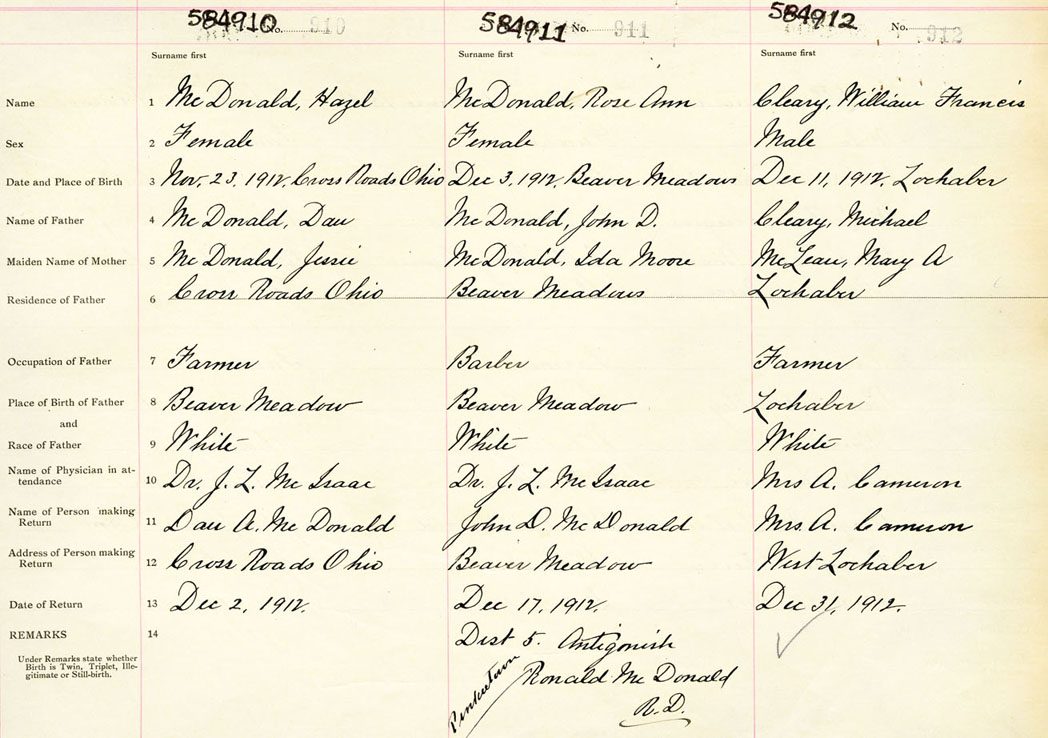 584910 No. 910 584911 No. 911 584912 No. 912
Surname first Surname first Surname first
Name 1 McDonald, Hazel McDonald, Rose Ann Cleary, William Francis
Sex 2 Female Female Male
Date and Place of Birth 3 Nov. 23, 1912, Cross Roads Ohio Dec 3, 1912, Beaver Meadows Dec 11, 1912, Lochaber
Name of Father 4 McDonald, Dan McDonald, John D. Cleary, Michael
Maiden Name of Mother 5 McDonald, Jessie McDonald, Ida Moore McLean, Mary A
Residence of Father 6 Cross Roads Ohio Beaver Meadows Lochaber
Occupation of Father 7 Farmer Barber Farmer
Place of Birth of Father 8 Beaver Meadow Beaver Meadow Lochaber
and
Race of Father 9 White White White
Name of Physician in at-
tendance 10 Dr. J. L. McIsaac Dr. J. L. McIsaac Mrs A. Cameron
Name of Person making
Return 11 Dan A. McDonald John D. McDonald Mrs. A. Cameron
Address of Person making
Return 12 Cross Roads Ohio Beaver Meadow West Lochaber
Date of Return 13 Dec 2, 1912. Dec 17, 1912. Dec 31, 1912.
REMARKS 14 Dist 5. Antigonish
Under Remarks state whether
Birth is Twin, Triplet, Ille-
gitimate or Still-birth.
Ronald McDonald
R.D.